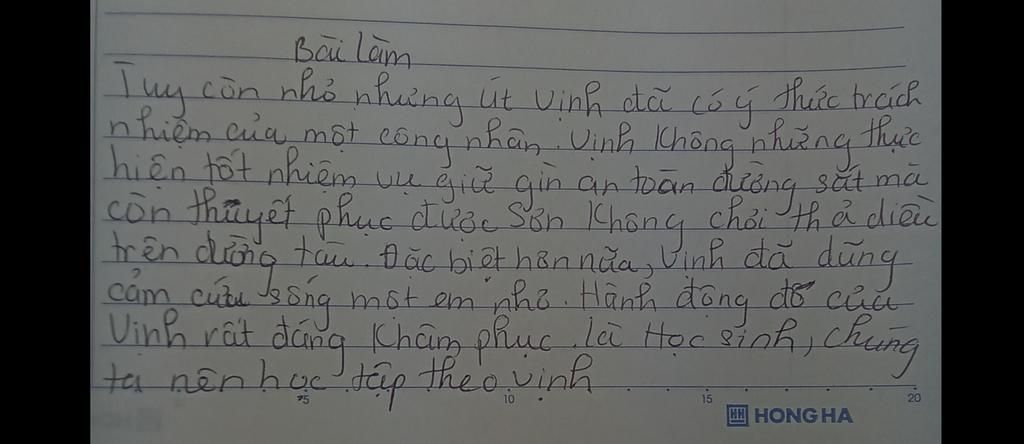 Bài làm
Tuy còn nhỏ nhưng út Vịnh đã có ý thức trách
nhiệm của một công nhân. Vịnh Không những thực
hiện tốt nhiệm vụ giữ gìn an toàn đường sắt mà
còn thuyết phục được Sơn Không chơi thả diều
trên đường tàu. Đặc biệt hơn nữa, Vịnh đã dũng
cảm cứu sống một em nhỏ. Hành động đó của
Vịnh rất đáng Khâm phục. là Học sinh, chúng
ta nên học tập theo vịnh
5 10 15 20
HH HONG HA